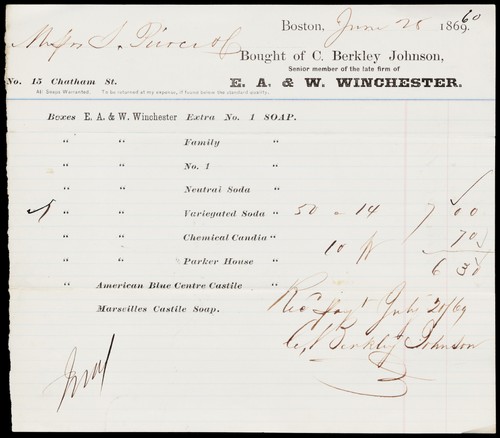 60
Boston, June 28 1869.
Messrs S. Pierce & Co
Bought of C. Berkley Johnson,
Senior member of the late firm of
No. 15 Chatham St. E. A. & W. WINCHESTER.
All Soaps Warranted. To be returned at my expense, if found below the standard quality.
Boxes E. A. & W. Winchester Extra No. 1 SOAP.
" " Family "
" " No. 1 "
" " Neutral Soda "
" " Variegated Soda " 50 - 14 7 00
" " Chemical Candia " 10 70
" " Parker House " 6 30
" American Blue Centre Castile "
" Marseilles Castile Soap.
Rec'd pay't July 20/69
C. Berkley Johnson